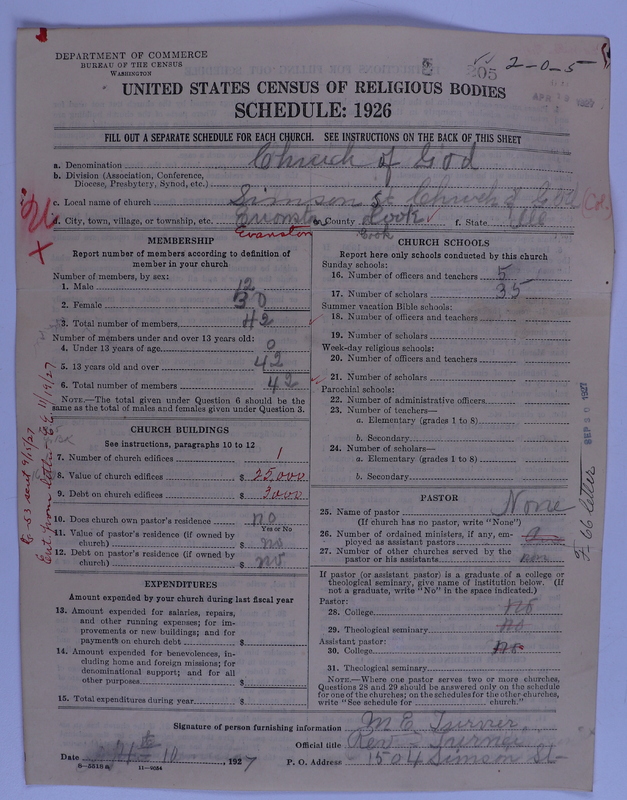 DEPARTMENT OF COMMERCE
BUREAU OF THE CENSUS
WASHINGTON
205
2-0-5
UNITED STATES CENSUS OF RELIGIOUS BODIES
SCHEDULE: 1926
FILL OUT A SEPARATE SCHEDULE FOR EACH CHURCH. SEE INSTRUCTIONS ON THE BACK OF THIS SHEET
a. Denomination Church of God
b. Division (Association, Conference,
Diocese, Presbytery, Synod, etc.)
c. Local name of church Simson St Church of God (Col.)
d. City, town, village, or township, etc. e. County Cook f. State
Evanston Cook
MEMBERSHIP
Report number of members according to definition of
member in your church
Number of members, by sex:
1. Male 12
2. Female 30
3. Total number of members 42
Number of members under and over 13 years old:
4. Under 13 years of age 0
5. 13 years old and over 42
6. Total number of members 42
NOTE.—The total given under Question 6 should be the
same as the total of males and females given under Question 3.
CHURCH BUILDINGS
See instructions, paragraphs 10 to 12
7. Number of church edifices 1
8. Value of church edifices $ 25000
9. Debt on church edifices $ 3000
10. Does church own pastor's residence no
Yes or No
11. Value of pastor's residence (if owned by
church) $ no
12. Debt on pastor's residence (if owned by
church) $ no
EXPENDITURES
Amount expended by your church during last fiscal year
13. Amount expended for salaries, repairs,
and other running expenses; for im-
provements or new buildings; and for
payments on church debt $
14. Amount expended for benevolences, in-
cluding home and foreign missions; for
denominational support; and for all
other purposes $
15. Total expenditures during year $
CHURCH SCHOOLS
Report here only schools conducted by this church
Sunday schools:
16. Number of officers and teachers 5
17. Number of scholars 35
Summer vacation Bible schools:
18. Number of officers and teachers
19. Number of scholars
Week-day religious schools:
20. Number of officers and teachers
21. Number of scholars
Parochial schools:
22. Number of administrative officers
23. Number of teachers—
a. Elementary (grades 1 to 8)
b. Secondary
24. Number of scholars—
a. Elementary (grades 1 to 8)
b. Secondary
PASTOR
25. Name of pastor None
(If church has no pastor, write "None")
26. Number of ordained ministers, if any, em-
ployed as assistant pastors
27. Number of other churches served by the
pastor or his assistants
If pastor (or assistant pastor) is a graduate of a college or
theological seminary, give name of institution below. (If
not a graduate, write "No" in the space indicated.)
Pastor:
28. College no
29. Theological seminary no
Assistant pastor:
30. College no
31. Theological seminary
NOTE.—Where one pastor serves two or more churches,
Questions 28 and 29 should be answered only on the schedule
for one of the churches; on the schedules for the other churches,
write "See schedule for church."
Signature of person furnishing information M E Turner
Official title Rev Turner
Date 10, 1927 P. O. Address 1504 Simson St
8—5518a 11—9054
SEP 20 1927
F-66 letter